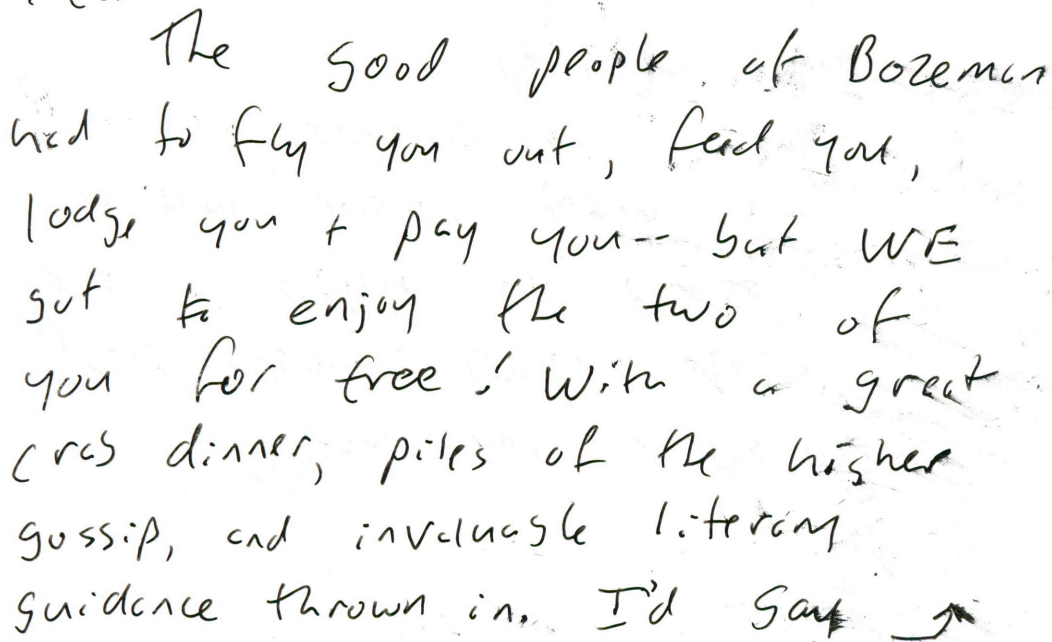 The good people at Bozeman
had to fly you out, feed you,
lodge you + pay you -- but WE
got to enjoy the two of
you for free! With a great
crab dinner, piles of the higher
gossip, and invaluable literary
guidance thrown in. I'd say